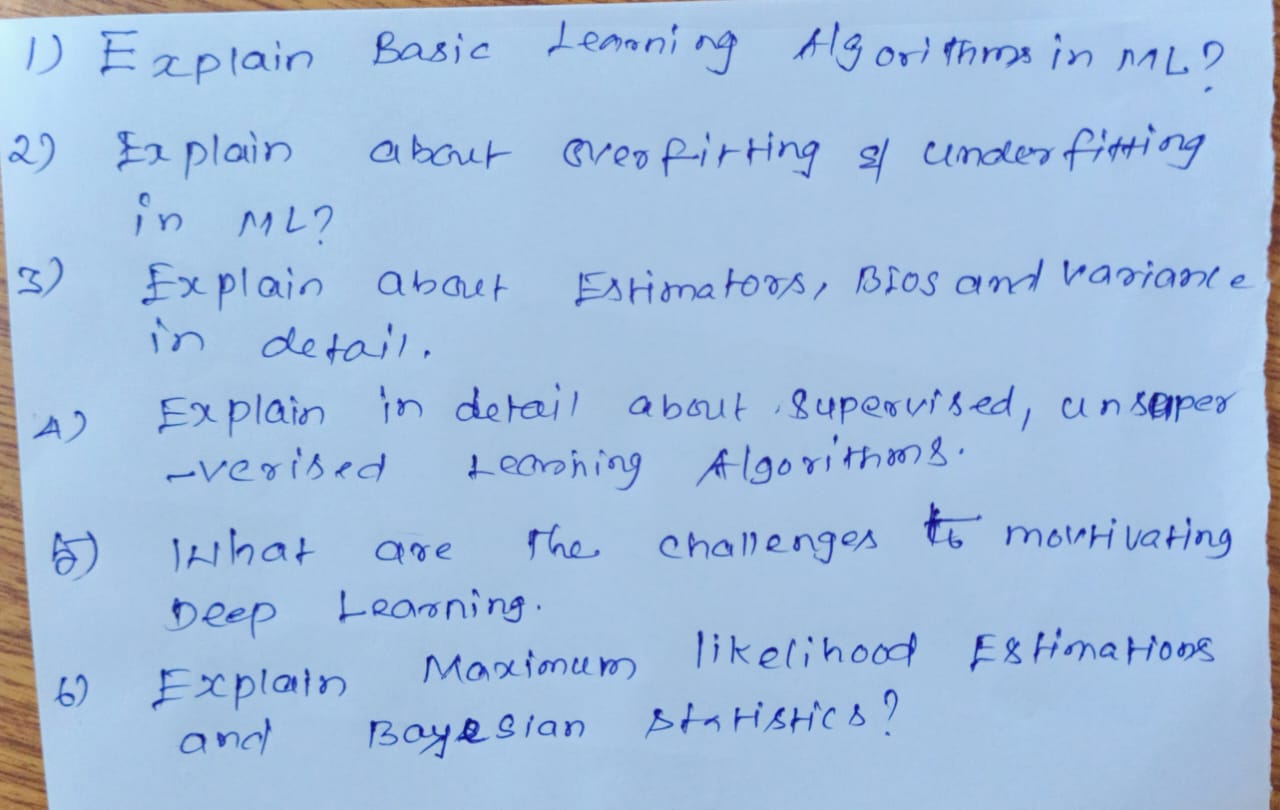 1) Explain Basic Learning Algorithms in ML?
2) Explain about overfitting & underfitting
in ML?
3) Explain about Estimators, Bios and variance
in detail.
4) Explain in detail about supervised, unsuper
-verised Learning Algorithms.
5) What are the challenges to motivating
Deep Learning.
6) Explain Maximum likelihood Estimations
and Bayesian statistics?